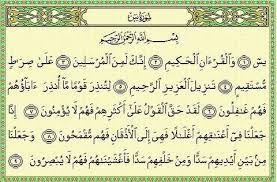 سُورَةُ يسٓ
بِسْمِ اللَّهِ الرَّحْمَٰنِ الرَّحِيمِ
يسٓ ١ وَٱلْقُرْءَانِ ٱلْحَكِيمِ ٢ إِنَّكَ لَمِنَ ٱلْمُرْسَلِينَ ٣ عَلَىٰ صِرَٰطٍ
مُّسْتَقِيمٍ ٤ تَنزِيلَ ٱلْعَزِيزِ ٱلرَّحِيمِ ٥ لِتُنذِرَ قَوْمًا مَّآ أُنذِرَ ءَابَآؤُهُمْ
فَهُمْ غَٰفِلُونَ ٦ لَقَدْ حَقَّ ٱلْقَوْلُ عَلَىٰٓ أَكْثَرِهِمْ فَهُمْ لَا يُؤْمِنُونَ ٧ إِنَّا
جَعَلْنَا فِىٓ أَعْنَٰقِهِمْ أَغْلَٰلًا فَهِىَ إِلَى ٱلْأَذْقَانِ فَهُم مُّقْمَحُونَ ٨ وَجَعَلْنَا
مِنۢ بَيْنِ أَيْدِيهِمْ سَدًّا وَمِنْ خَلْفِهِمْ سَدًّا فَأَغْشَيْنَٰهُمْ فَهُمْ لَا يُبْصِرُونَ ٩